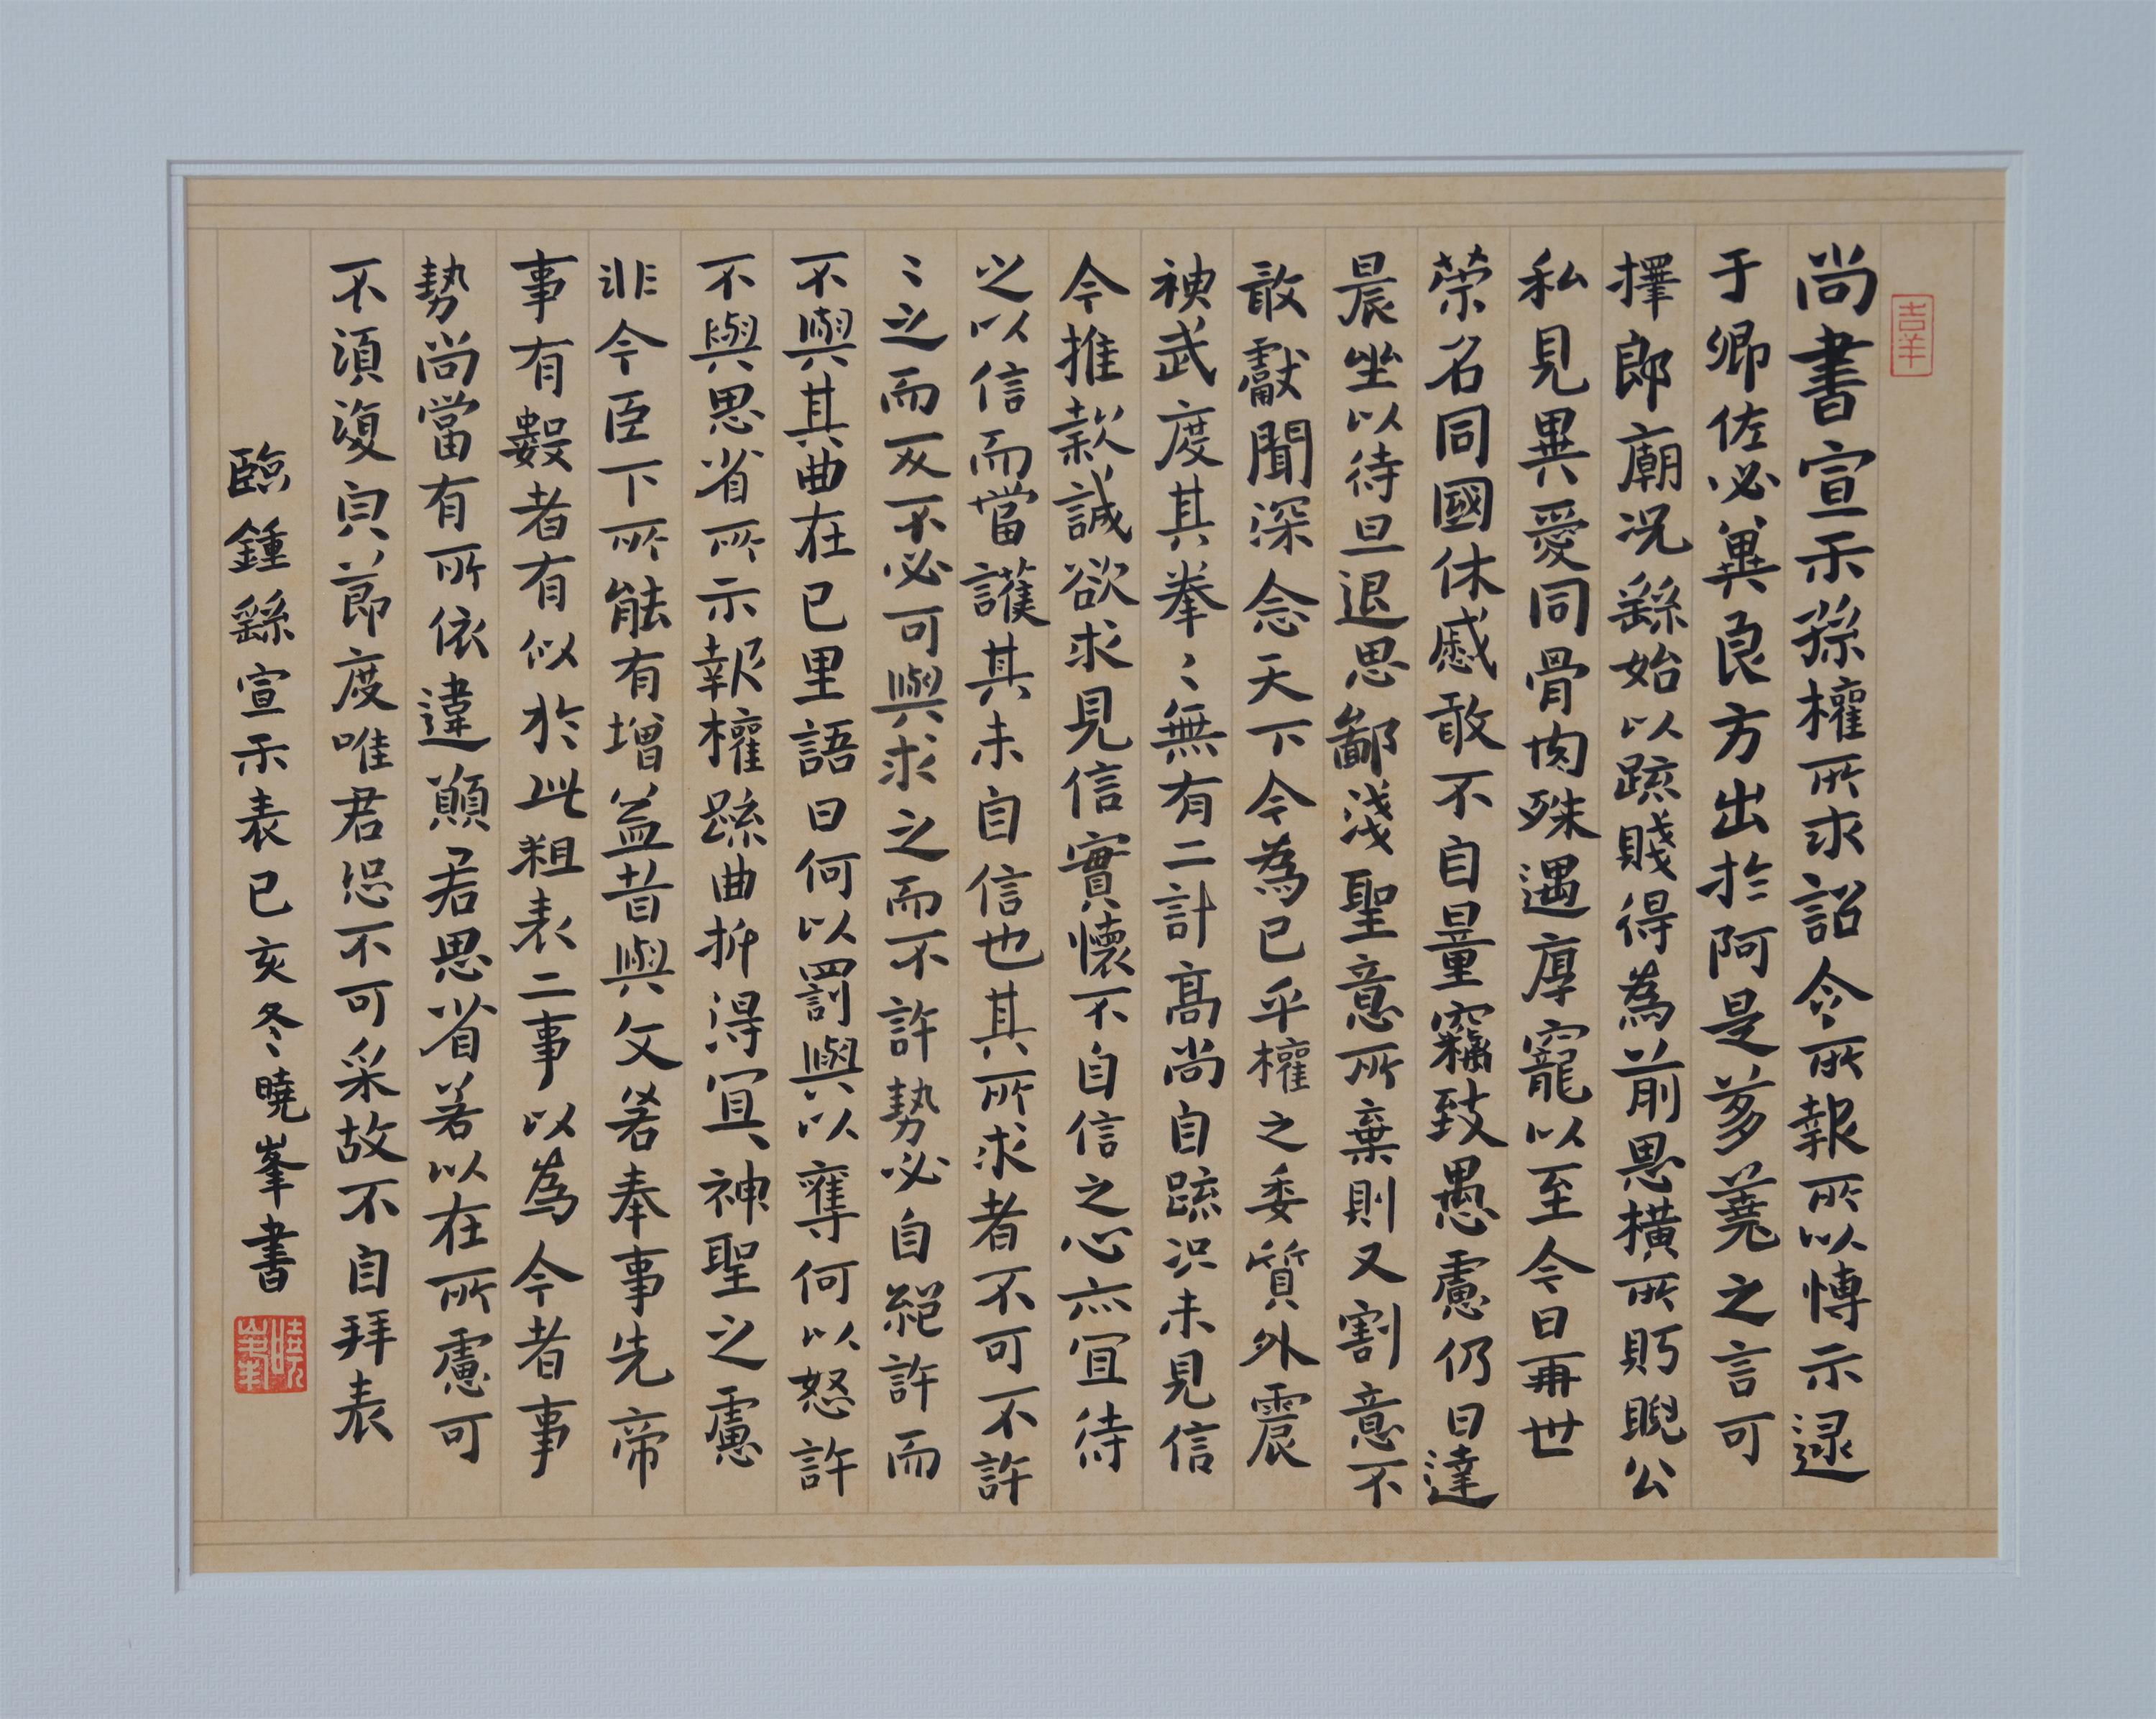 吉羊
尚書宣示孫權所求詔令所報所以博示逯
于卿佐必冀良方出於阿是芻蕘之言可
擇郎廟況繇始以疏賤得為前恩橫所眄睨公
私見異愛同骨肉殊遇厚寵以至今日再世
榮名同國休慼敢不自量竊致愚慮仍日達
晨坐以待旦退思鄙淺聖意所棄則又割意不
敢獻聞深念天下今為已平權之委質外震
神武度其拳〻無有二計高尚自疏況未見信
今推款誠欲求見信實懷不自信之心亦宜待
之以信而當護其未自信也其所求者不可不許
〻之而反不必可與求之而不許勢必自絕許而
不與其曲在已里語曰何以罰與以奪何以怒許
不與思省所示報權疏曲折得宜神聖之慮
非今臣下所能有增益昔與文若奉事先帝
事有數者有似於此粗表二事以為今者事
勢尚當有所依違願君思省若以在所慮可
不須復皃節度唯君恐不可采故不自拜表
臨鍾繇宣示表已亥冬曉峯書
曉峯